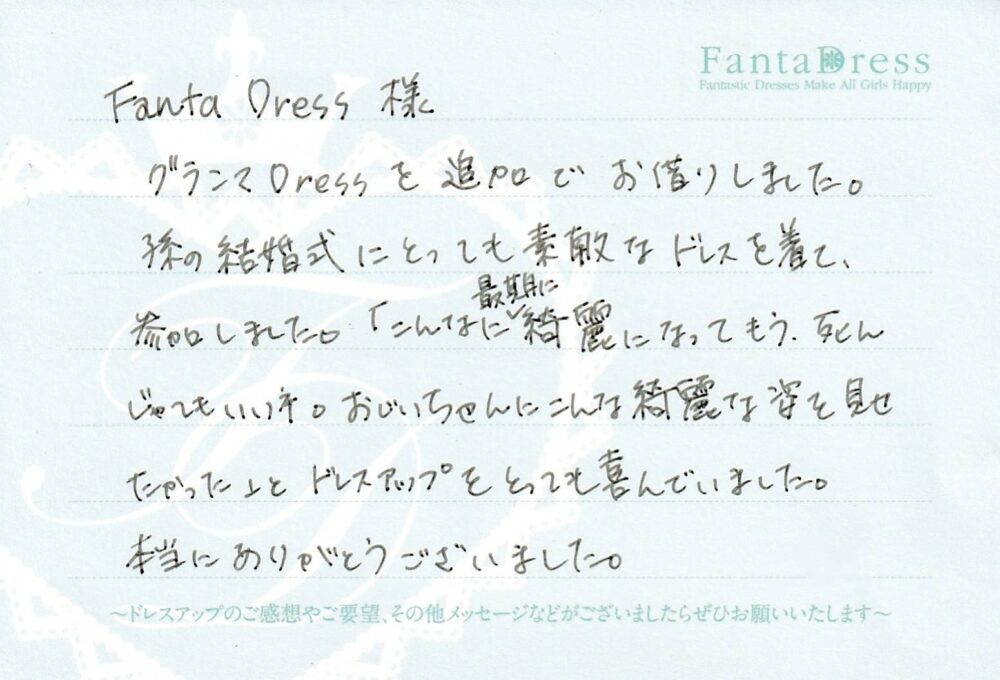 FantaDress
Fantastic Dresses Make All Girls Happy
Fanta Dress 様
グランマDressを追加でお借りしました。
孫の結婚式にとっても素敵なドレスを着て、
参加しました。「こんなに最期に綺麗になってもう、死ん
じゃてもいいネ。おじいちゃんにこんな綺麗な姿を見せ
たかった」とドレスアップをとっても喜んでいました。
本当にありがとうございました。
～ドレスアップのご感想やご要望、その他メッセージなどがございましたらぜひお願いいたします～